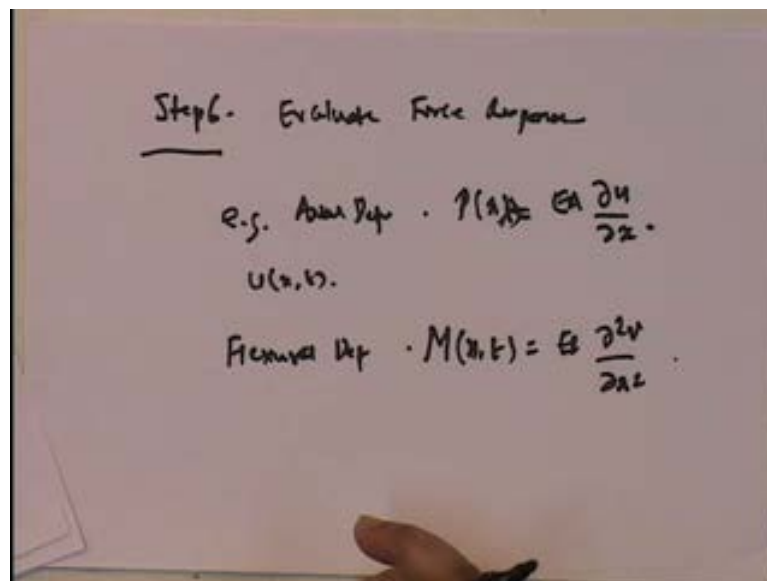 Step 6. Evaluate Force Response
e.g. Axial Defn . P(x,t) = EA ∂u/∂x .
u(x,t).
Flexural Def . M(x,t) = EI ∂²v/∂x² .